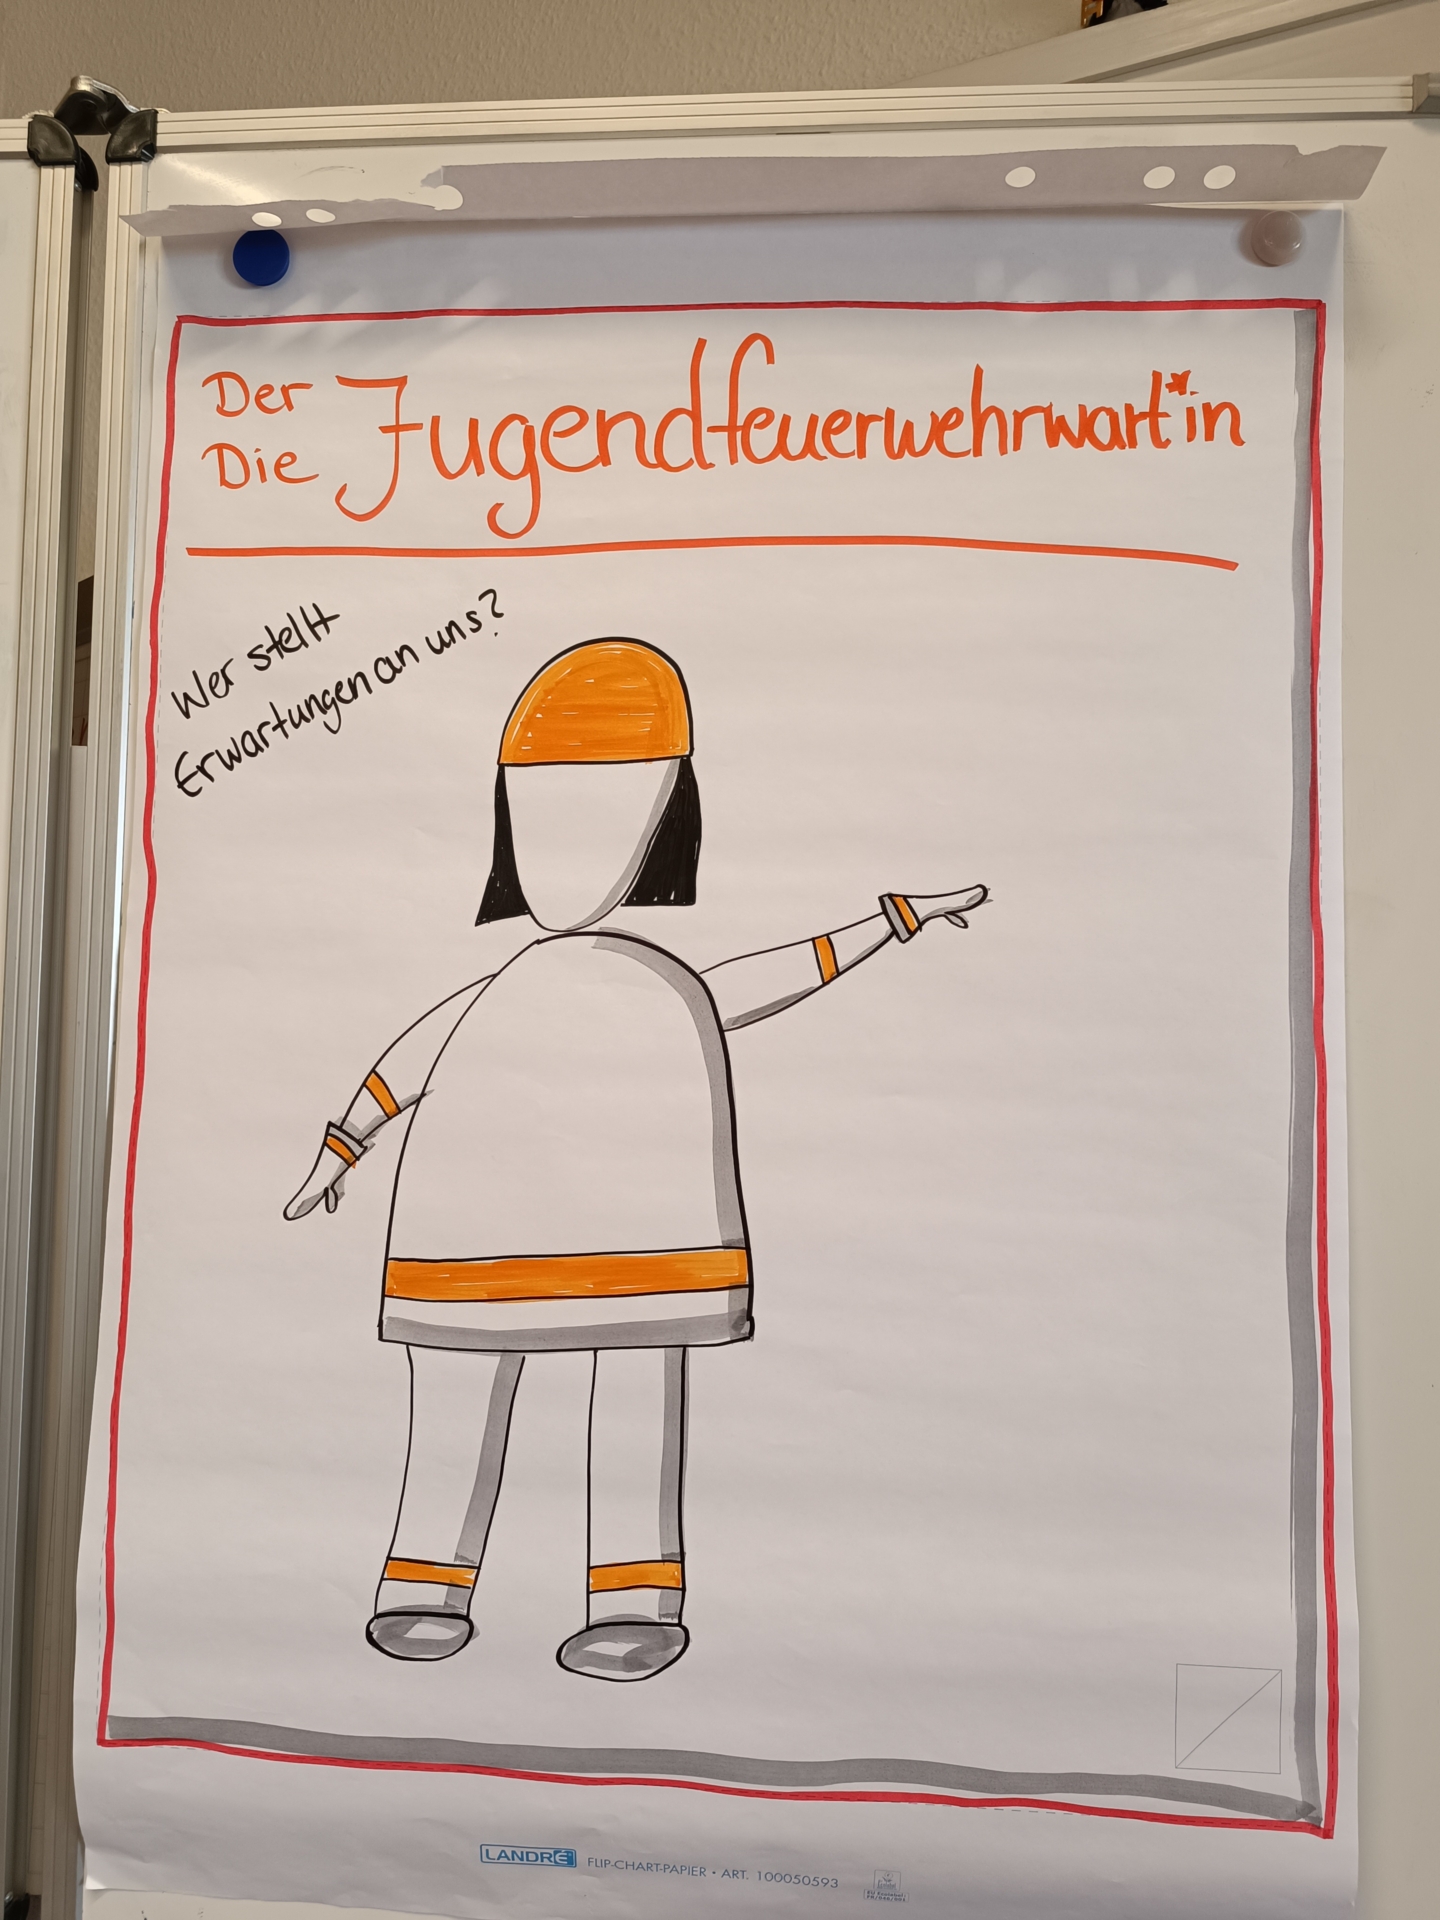 Der
Die Jugendfeuerwehrwart*in
Wer stellt
Erwartungen an uns?
LANDRÉ FLIP-CHART-PAPIER • ART. 100050593